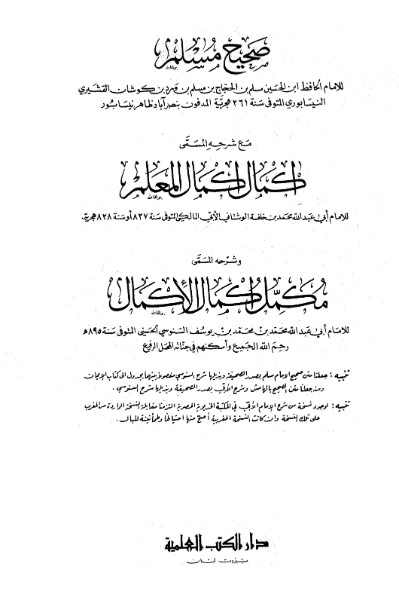 صحيح مسلم
للإمام الحافظ ابن الحسين مسلم بن الحجاج بن مسلم بن قره بن كوشان القشيري
النيسابوري المتوفى سنة ٢٦١ هجرية المدفون بنصر آباد ظاهر نيسابور
مع شرحه المسمى
إكمال إكمال المعلم
للإمام أبي عبد الله محمد بن خلفة الوشتاني الأبي المالكي المتوفى سنة ٨٢٧ أو سنة ٨٢٨ هجرية.
وشرحه المسمى
مكمل إكمال الإكمال
للإمام أبي عبد الله محمد بن محمد بن يوسف السنوسي الحسيني المتوفى سنة ٨٩٥ هـ
رحم الله الجميع وأسكنهم في جنانه المحل الرفيع
تنبيه : جعلنا متن صحيح الإمام مسلم بصدر الصحيفة وبذيلها شرح السنوسي مفصولا بينهما بجدول إلى كتاب الإيمان
ومنه جعلنا متن الصحيح بالهامش وشرح الأبي بصدر الصحيفة وبذيلها شرح السنوسي.
تنبيه : لوجود نسخة من شرح الإمام الأبي في المكتبة الخديوية المصرية التزمنا مقابلة النسخة الواردة من المغرب
على تلك النسخة وان كانت النسخة المغربية أصح منها احتياطا وطمأنينة للبال.
دار الكتب العلمية
بيروت لبنان